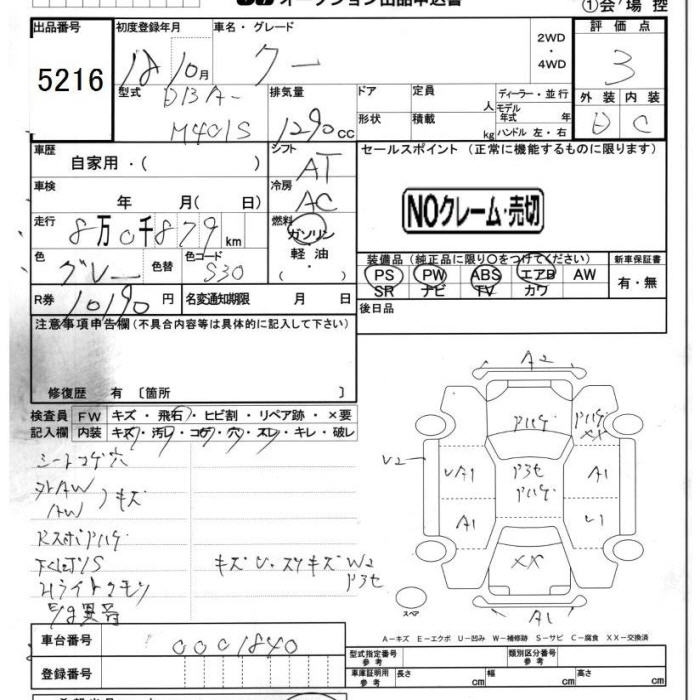 オークション出品申込書
①会場控
出品番号 初度登録年月 車名・グレード 評価点
5216 18 10月 クー 2WD・4WD 3
型式 DBA-M401S 排気量 1290cc ドア 定員 人 ディーラー・並行
形状 積載 kg モデル年式 年 ハンドル 左・右
外装 内装
D C
車歴 自家用・( ) シフト AT
セールスポイント (正常に機能するものに限ります)
車検 年 月( 日) 冷房 AC
NOクレーム・売切
走行 8万0千879km 燃料 ガソリン・軽油・( )
色 グレー 色替 色コード S30
装備品(純正品に限り○をつけてください) 新車保証書
PS PW ABS エアB AW
SR ナビ TV カワ
有・無
R券 10190円 名変通知期限 月 日
後日品
注意事項申告欄(不具合内容等は具体的に記入して下さい)
修復歴 有〔箇所 〕
検査員記入欄 FW キズ・飛石・ヒビ割・リペア跡・×要
内装 キズ・汚レ・コゲ・穴・スレ・キレ・破レ
シートコゲ穴
外AW
AW キズ
Hライトクモリ
A2
XX
U2
UA1
A1
A1
U1
XX
W2
スペア
A1
A-キズ E-エクボ U-凹み W-補修跡 S-サビ C-腐食 XX-交換済
車台番号 0001840
登録番号
型式指定番号 参考 類別区分番号 参考
車庫証明用 参考 長さ cm 幅 cm 高さ cm